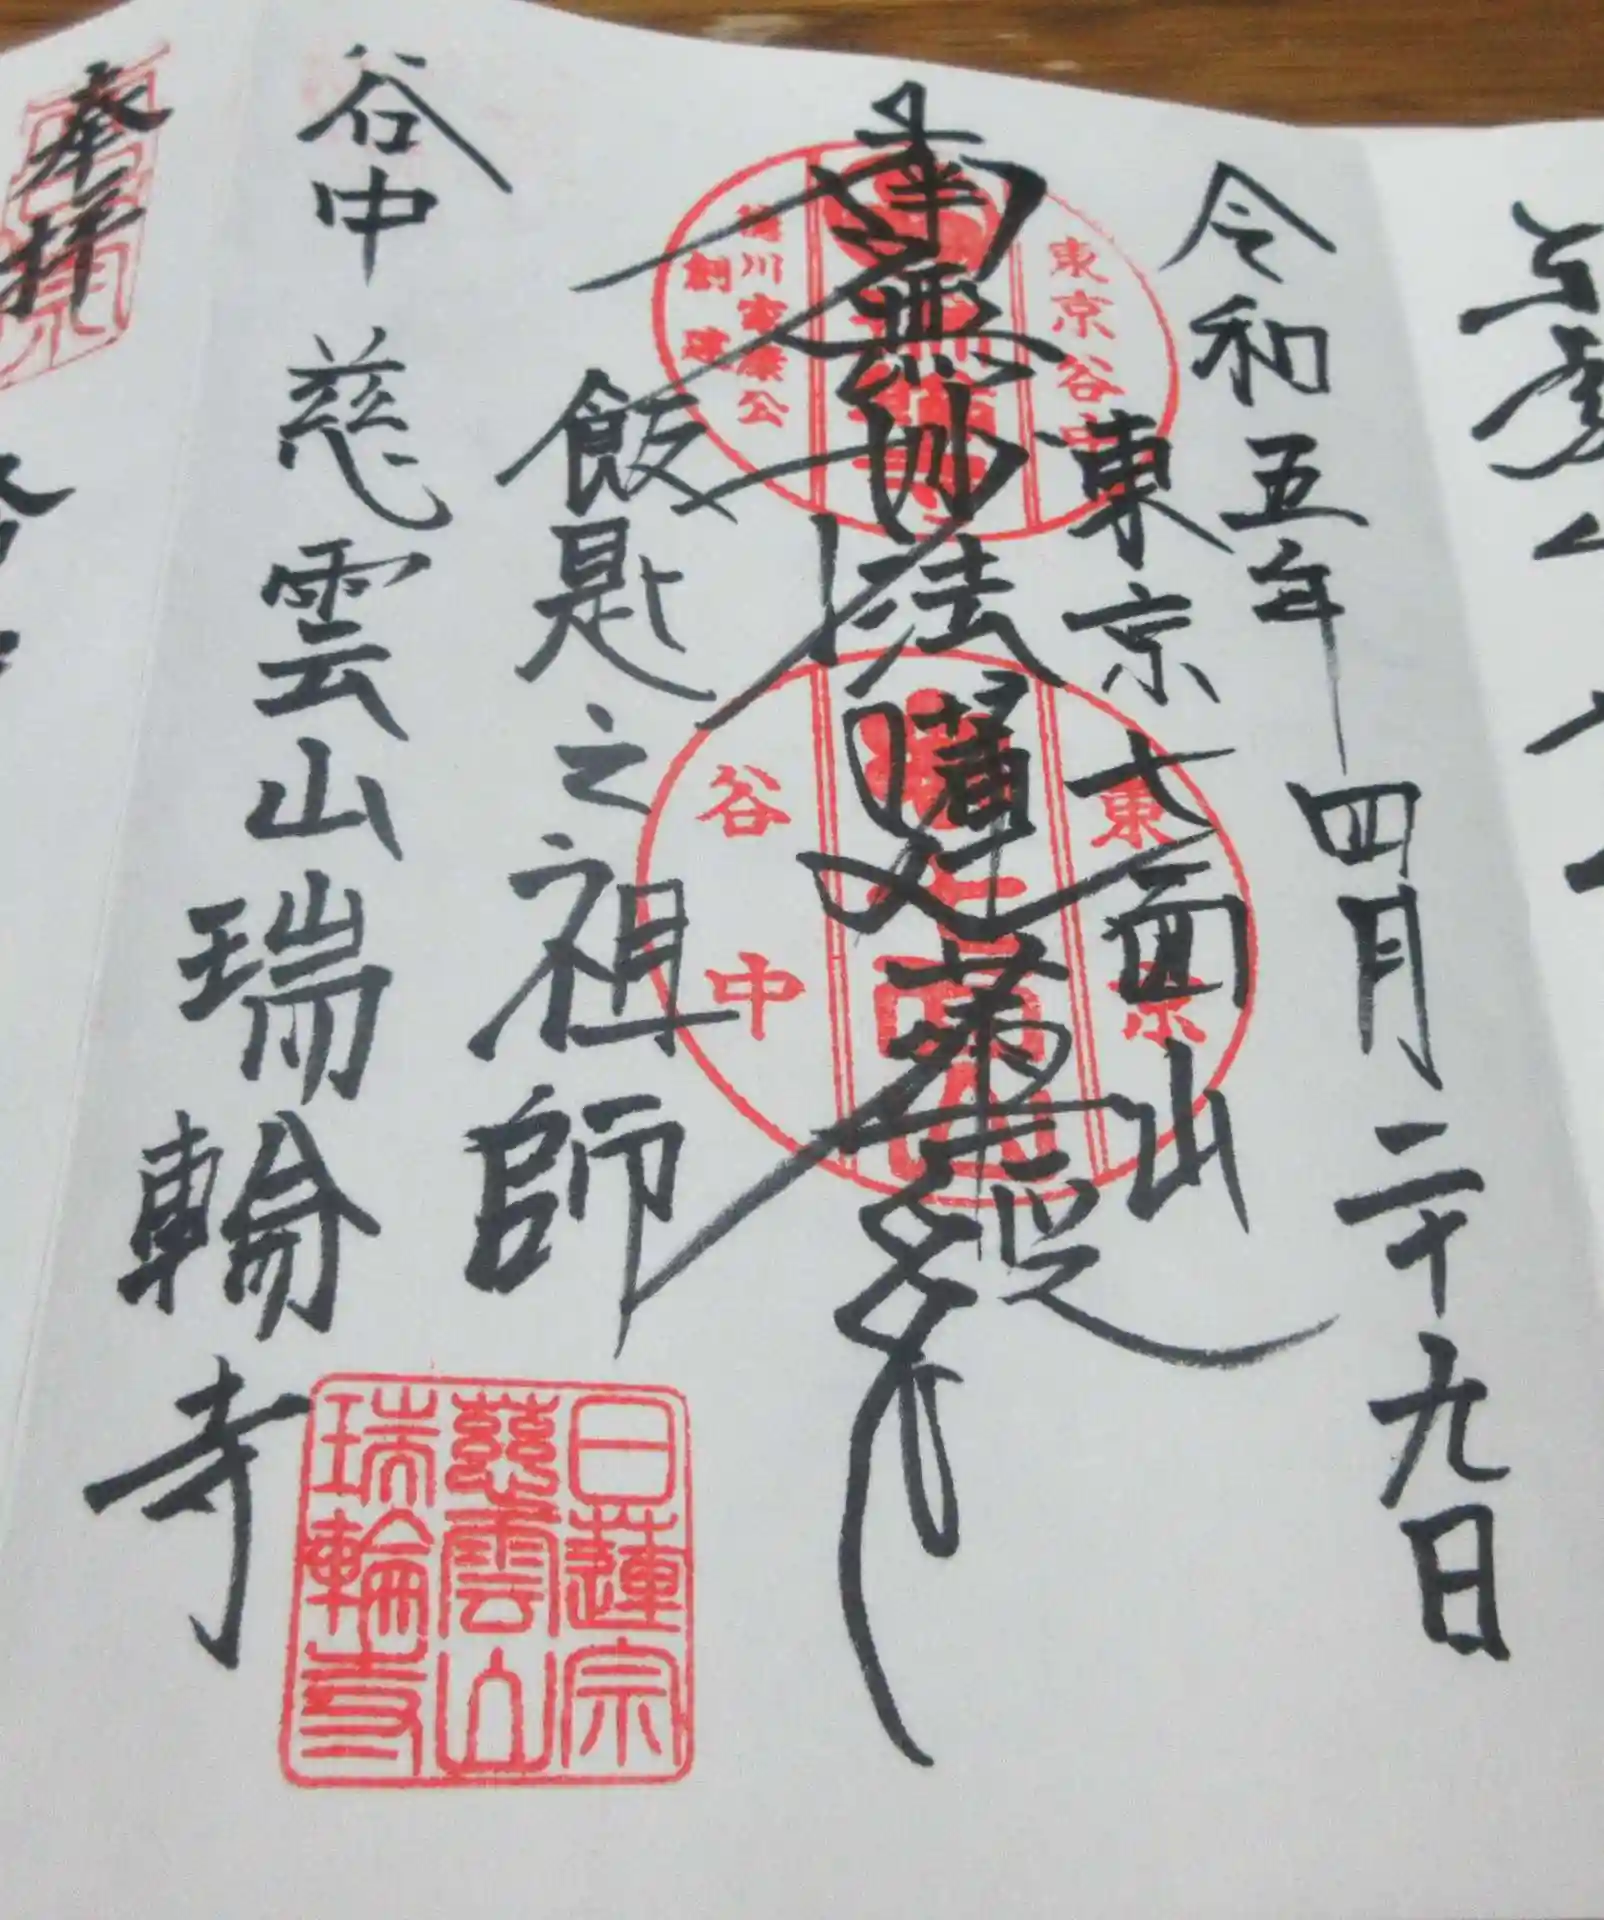 令和五年四月二十九日
東京七面山
南無妙法蓮華経
飯匙之祖師
谷中 慈雲山瑞輪寺
東京谷中
徳川家康公
創建
東京
七面山
谷中
日蓮宗
慈雲山
瑞輪寺
奉拝